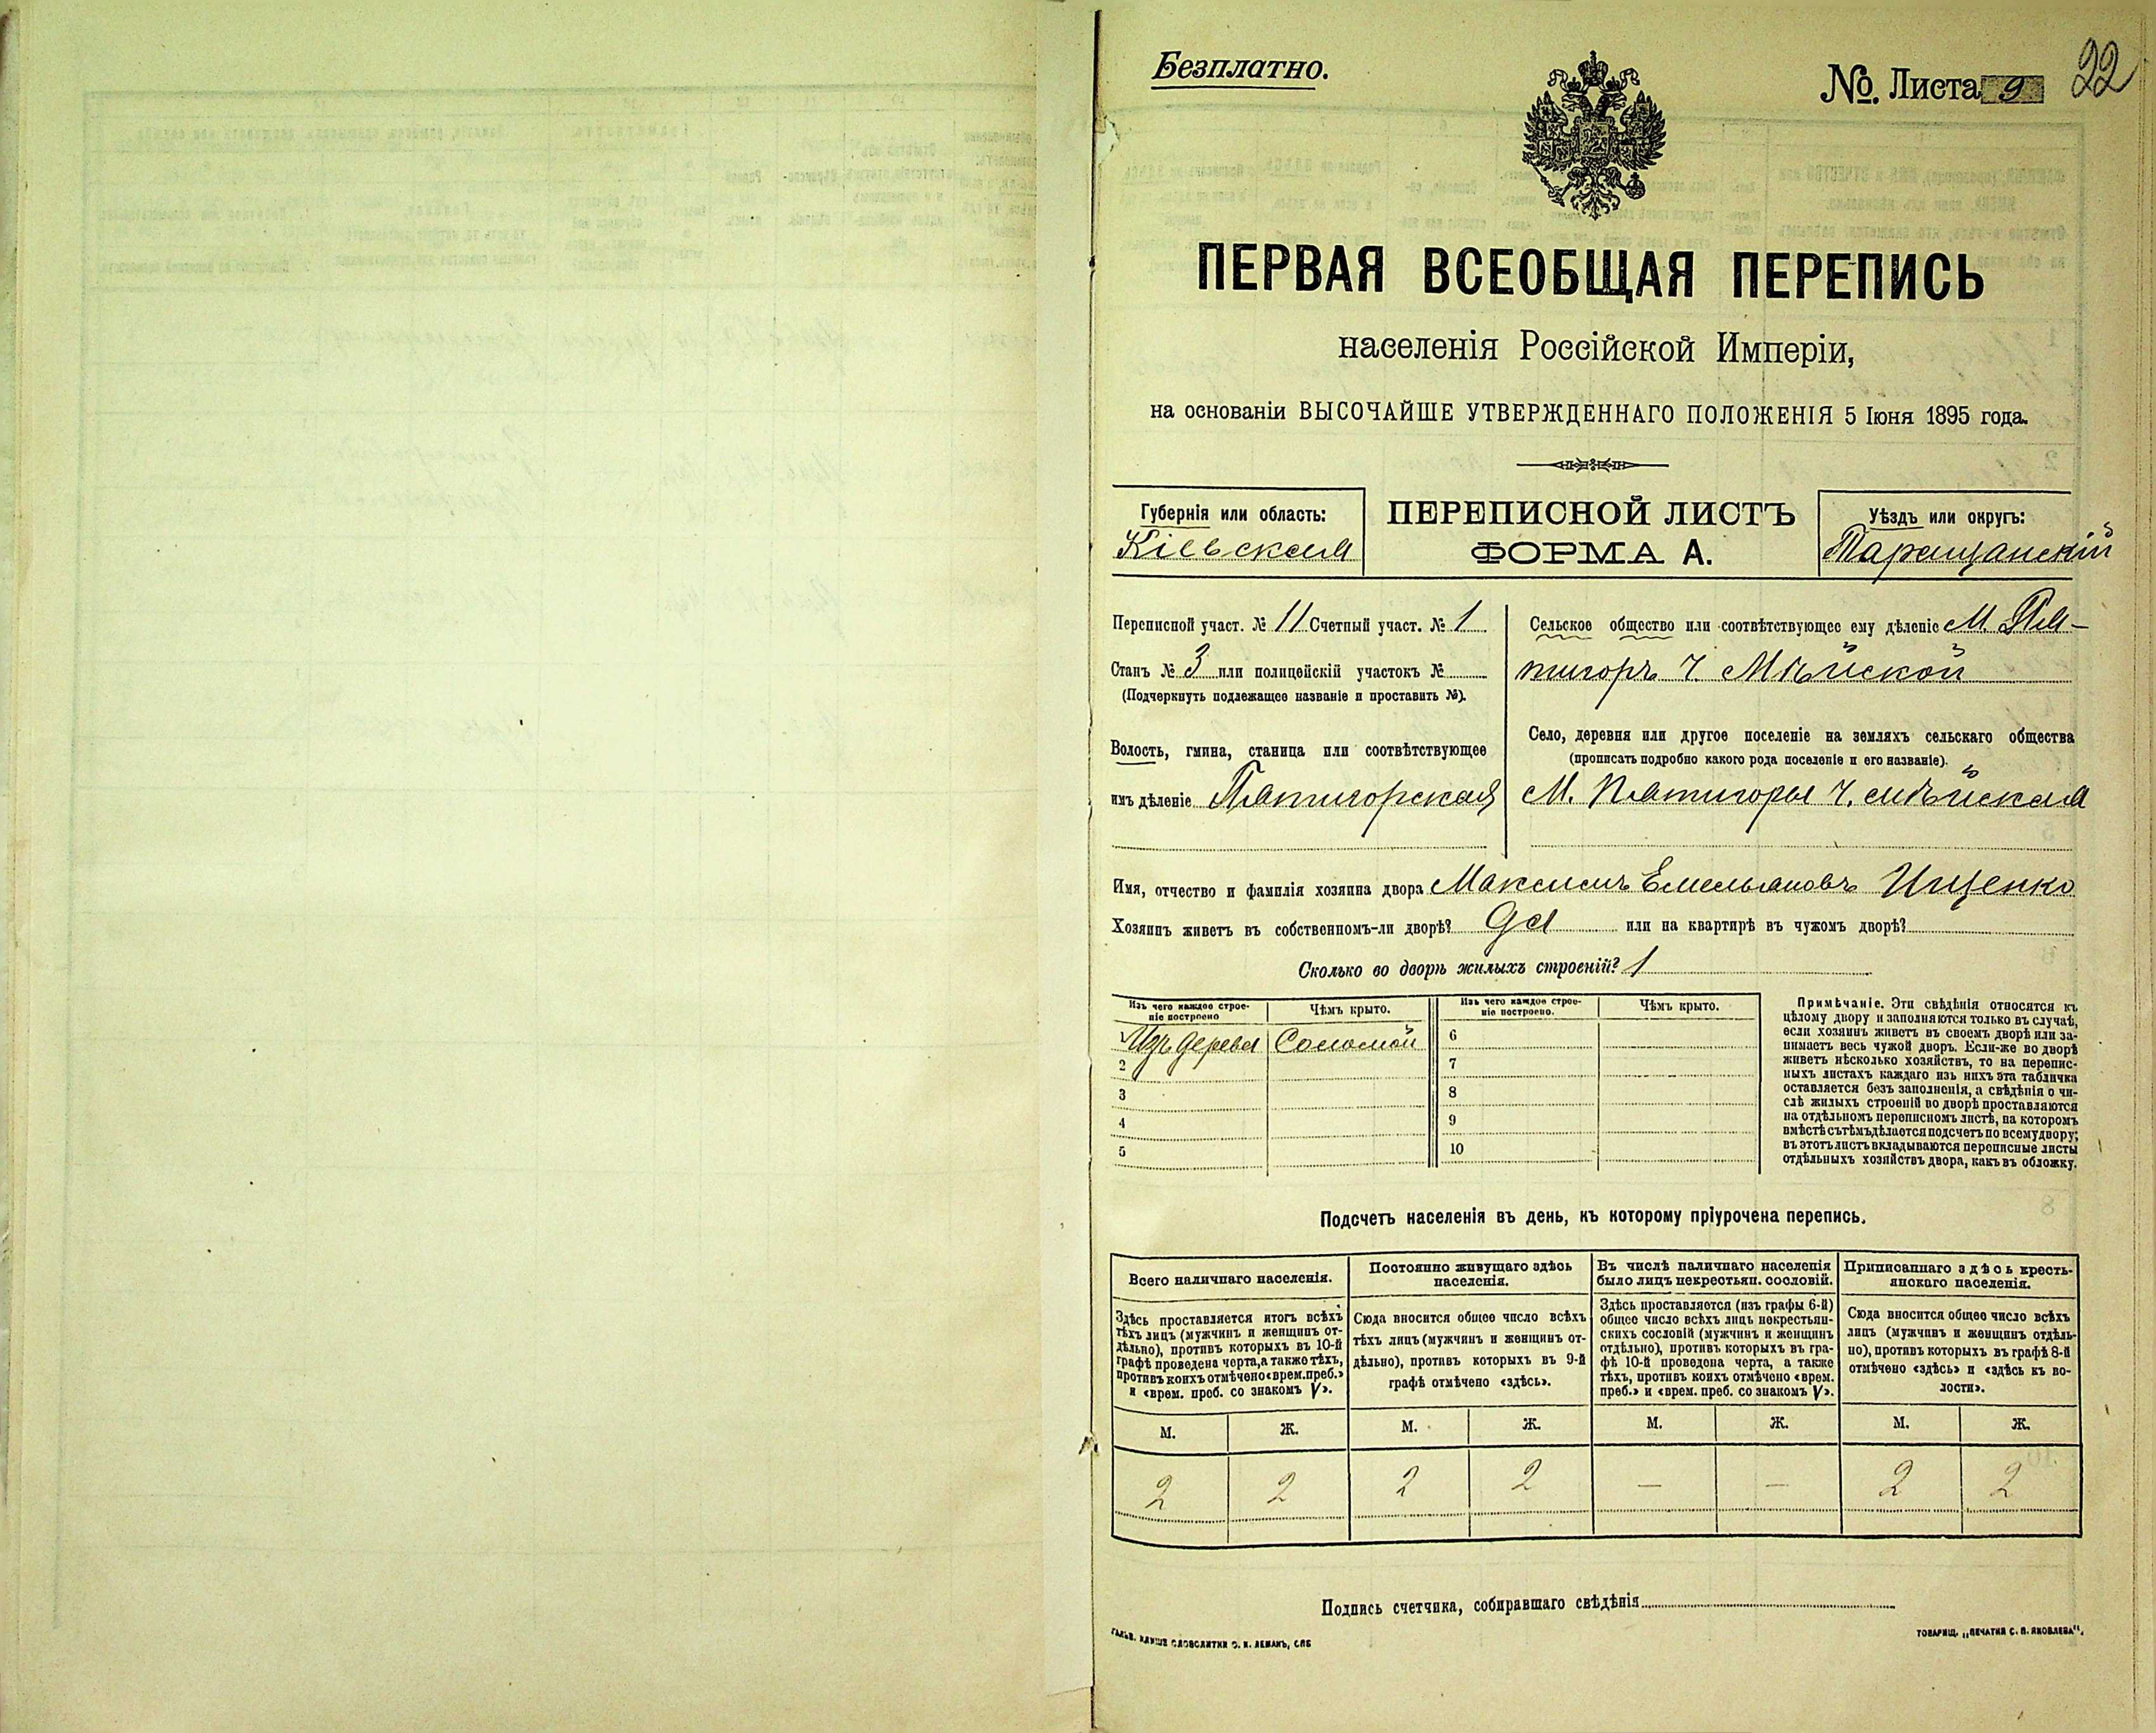 Безплатно.
№. Листа 9
22
ПЕРВАЯ ВСЕОБЩАЯ ПЕРЕПИСЬ
населенія Россійской Имперіи,
на основаніи ВЫСОЧАЙШЕ УТВЕРЖДЕННАГО ПОЛОЖЕНІЯ 5 Іюня 1895 года.
Губернія или область:
Кіевская
ПЕРЕПИСНОЙ ЛИСТЪ
ФОРМА А.
Уѣздъ или округъ:
Таращанскій
Переписной участ. № 11 Счетный участ. № 1
Станъ № 3 или полицейскій участокъ №
(Подчеркнуть подлежащее названіе и проставить №).
Волость, гмина, станица или соотвѣтствующее
имъ дѣленіе Пятигорская
Сельское общество или соотвѣтствующее ему дѣленіе М. Пя-
тигоръ Ч.
Село, деревня или другое поселеніе на земляхъ сельскаго общества
(прописать подробно какого рода поселеніе и его названіе).
М. Пятигоры Ч.
Имя, отчество и фамилія хозяина двора Максимъ Емельяновъ Ищенко
Хозяинъ живетъ въ собственномъ-ли дворѣ? Да или на квартирѣ въ чужомъ дворѣ?
Сколько во дворѣ жилыхъ строеній? 1
Изъ чего каждое строе-
ніе построено
Чѣмъ крыто.
Изъ чего каждое строе-
ніе построено.
Чѣмъ крыто.
1 Изъ дерева Соломой
2
3
4
5
6
7
8
9
10
Примѣчаніе. Эти свѣдѣнія относятся къ
цѣлому двору и заполняются только въ случаѣ,
если хозяинъ живетъ въ своемъ дворѣ или за-
нимаетъ весь чужой дворъ. Если-же во дворѣ
живетъ нѣсколько хозяйствъ, то на перепис-
ныхъ листахъ каждаго изъ нихъ эта табличка
оставляется безъ заполненія, а свѣдѣнія о чи-
слѣ жилыхъ строеній во дворѣ проставляются
на отдѣльномъ переписномъ листѣ, на которомъ
вмѣстѣ съ тѣмъ дѣлается подсчетъ по всему двору;
въ этотъ листъ вкладываются переписные листы
отдѣльныхъ хозяйствъ двора, какъ въ обложку.
Подсчетъ населенія въ день, къ которому пріурочена перепись.
Всего наличнаго населенія.
Здѣсь проставляется итогъ всѣхъ
тѣхъ лицъ (мужчинъ и женщинъ от-
дѣльно), противъ которыхъ въ 10-й
графѣ проведена черта, а также тѣхъ,
противъ коихъ отмѣчено «врем. преб.»
и «врем. преб. со знакомъ V».
Постоянно живущаго здѣсь
населенія.
Сюда вносится общее число всѣхъ
тѣхъ лицъ (мужчинъ и женщинъ от-
дѣльно), противъ которыхъ въ 9-й
графѣ отмѣчено «здѣсь».
Въ числѣ наличнаго населенія
было лицъ некрестьян. сословій.
Здѣсь проставляется (изъ графы 6-й)
общее число всѣхъ лицъ некрестьян-
скихъ сословій (мужчинъ и женщинъ
отдѣльно), противъ которыхъ въ гра-
фѣ 10-й проведена черта, а также
тѣхъ, противъ коихъ отмѣчено «врем.
преб.» и «врем. преб. со знакомъ V».
Приписаннаго здѣсь кресть-
янскаго населенія.
Сюда вносится общее число всѣхъ
лицъ (мужчинъ и женщинъ отдѣль-
но), противъ которыхъ въ графѣ 8-й
отмѣчено «здѣсь» и «здѣсь къ во-
лости».
М. Ж. М. Ж. М. Ж. М. Ж.
2 2 2 2 — — 2 2
Подпись счетчика, собиравшаго свѣдѣнія
ГАЛЬВ. КЛИШЕ СЛОВОЛИТНИ О. И. ЛЕМАНЪ, СПБ
ТОВАРИЩ. „ПЕЧАТНЯ С. П. ЯКОВЛЕВА“.